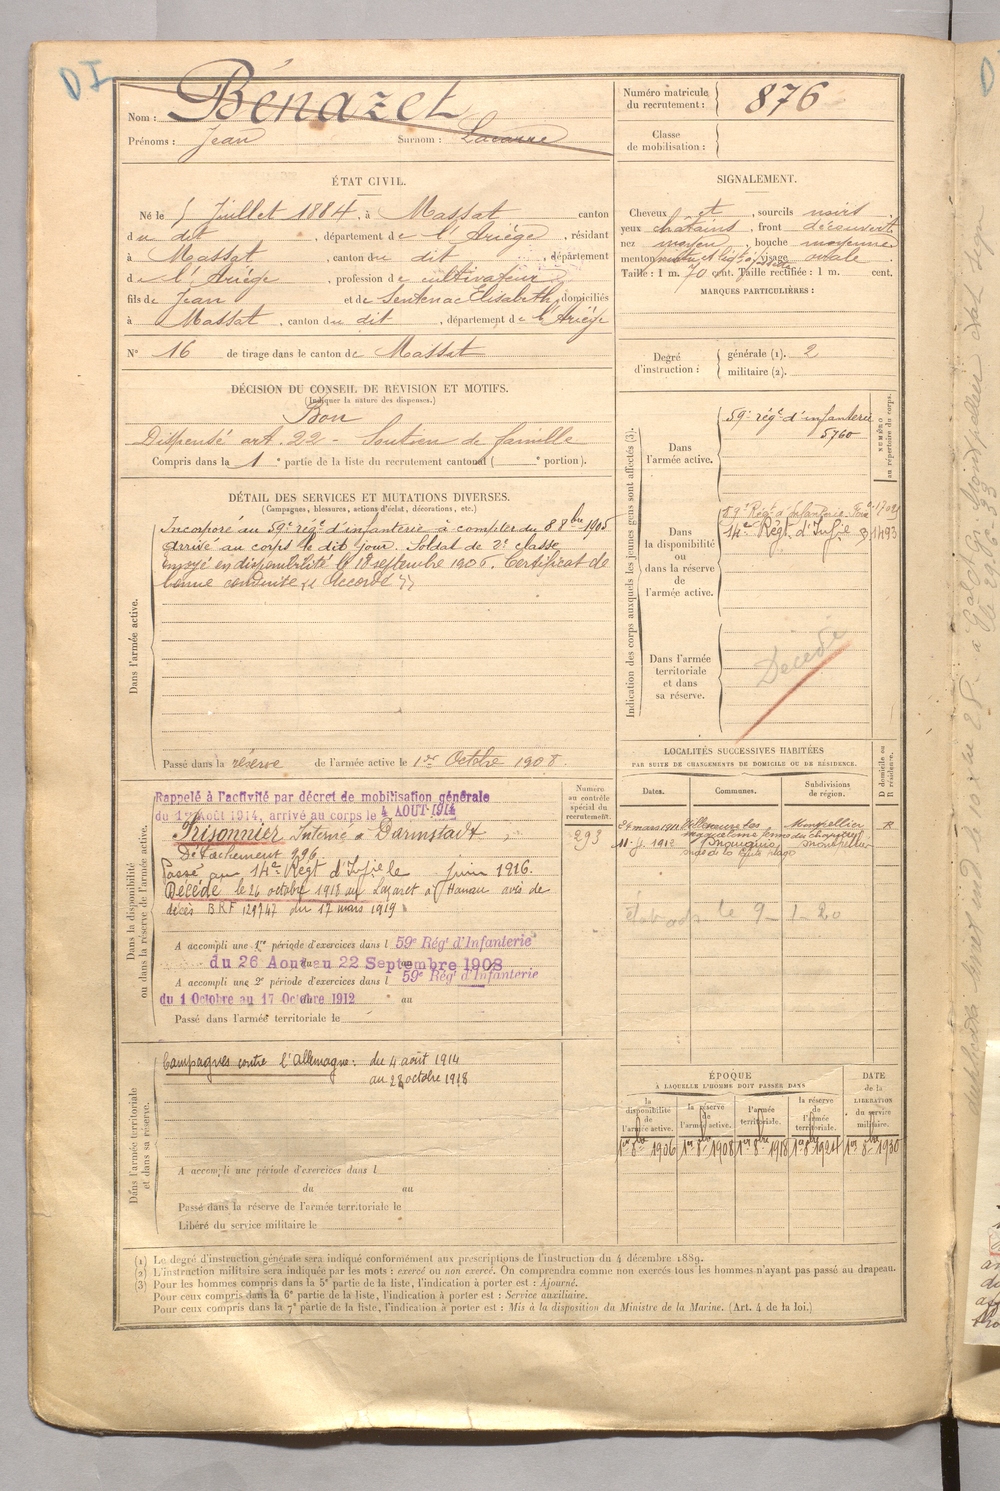 DI
Nom : Bénazet
Prénoms : Jean Surnom : Lacanne
Numéro matricule du recrutement : 876
Classe de mobilisation :
ÉTAT CIVIL.
Né le 5 Juillet 1884, à Massat canton
du dit, département de l'Ariège, résidant
à Massat, canton du dit, département
de l'Ariège, profession de cultivateur
fils de Jean et de Sentenac Elisabeth, domiciliés
à Massat, canton du dit, département de l'Ariège
N° 16 de tirage dans le canton de Massat
SIGNALEMENT.
Cheveux et, sourcils noirs,
yeux châtains, front découvert
nez moyen, bouche moyenne
menton visage ovale
Taille : 1 m. 70 cent. Taille rectifiée : 1 m. cent.
MARQUES PARTICULIÈRES :
Degré d'instruction : générale (1). 2
militaire (2).
DÉCISION DU CONSEIL DE RÉVISION ET MOTIFS.
(Indiquer la nature des dispenses.)
Bon
Dispensé art. 22 - Soutien de famille
Compris dans la 1e partie de la liste du recrutement cantonal ( e portion).
DÉTAIL DES SERVICES ET MUTATIONS DIVERSES.
(Campagnes, blessures, actions d'éclat, décorations, etc.)
Dans l'armée active.
Incorporé au 59e régt d'infanterie à compter du 8 8bre 1905
arrivé au corps le dit jour. Soldat de 2e classe
envoyé en disponibilité le 18 septembre 1906. Certificat de
bonne conduite "Accordé"
Passé dans la réserve de l'armée active le 1er Octobre 1908.
Indication des corps auxquels les jeunes gens sont affectés (3).
NUMÉRO au répertoire du corps.
Dans l'armée active.
59e régt d'infanterie
5760
Dans la disponibilité ou dans la réserve de l'armée active.
59e Régt d'Infanterie
14e Régt d'Infie
Dans l'armée territoriale et dans sa réserve.
Décédé
LOCALITÉS SUCCESSIVES HABITÉES
PAR SUITE DE CHANGEMENTS DE DOMICILE OU DE RÉSIDENCE.
Dates. Communes. Subdivisions de région. D domicile ou R résidence.
24 mars 1911 Villeneuve les Montpellier R
Maguelonne
Montpellier
le 9-1-20
Dans la disponibilité ou dans la réserve de l'armée active.
Numéro au contrôle spécial du recrutement.
293
Rappelé à l'activité par décret de mobilisation générale
du 1er Août 1914, arrivé au corps le 4 AOUT 1914
Prisonnier Interné à Darmstadt
Détachement 996
Passé au 14e Régt d'Infie le juin 1916.
Décédé le 26 octobre 1918 au Lazaret de Hanau avis de
décès B.R.F 129747 du 17 mars 1919
A accompli une 1re période d'exercices dans l 59e Régt d'Infanterie
du 26 Aout au 22 Septembre 1908
A accompli une 2e période d'exercices dans l 59e Régt d'Infanterie
du 1 Octobre au 17 Octobre 1912 au
Passé dans l'armée territoriale le
Dans l'armée territoriale et dans sa réserve.
Campagnes contre l'Allemagne : du 4 août 1914
au 28 octobre 1918
A accompli une période d'exercices dans l
du au
Passé dans la réserve de l'armée territoriale le
Libéré du service militaire le
ÉPOQUE
À LAQUELLE L'HOMME DOIT PASSER DANS
DATE de la LIBÉRATION du service militaire.
la disponibilité de l'armée active. la réserve de l'armée active. l'armée territoriale. la réserve de l'armée territoriale.
1er 8bre 1906 1er 8bre 1908 1er 8bre 1918 1er 8bre 1924 1er 8bre 1930
(1) Le degré d'instruction générale sera indiqué conformément aux prescriptions de l'instruction du 4 décembre 1889.
(2) L'instruction militaire sera indiquée par les mots : exercé ou non exercé. On comprendra comme non exercés tous les hommes n'ayant pas passé au drapeau.
(3) Pour les hommes compris dans la 5e partie de la liste, l'indication à porter est : Ajourné.
Pour ceux compris dans la 6e partie de la liste, l'indication à porter est : Service auxiliaire.
Pour ceux compris dans la 7e partie de la liste, l'indication à porter est : Mis à la disposition du Ministre de la Marine. (Art. 4 de la loi.)